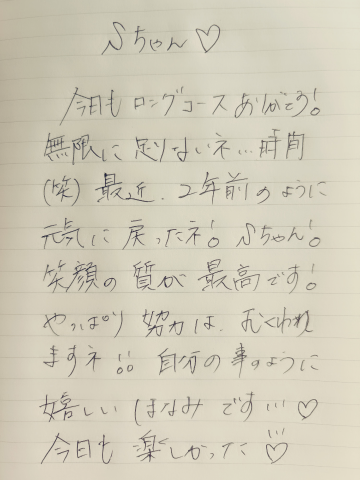 Sちゃん♡
今日もロングコースありがとう!
無限に足りないネ…時間
(笑)最近、2年前のように
元気に戻ったネ! Sちゃん!
笑顔の質が最高です!
やっぱり努力は、むくわれ
ますネ!! 自分の事のように
嬉しいはなみです…♡
今日も楽しかった♡